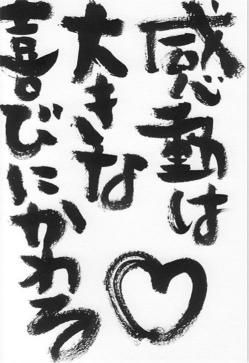 感動は
大きな
喜びにかわる